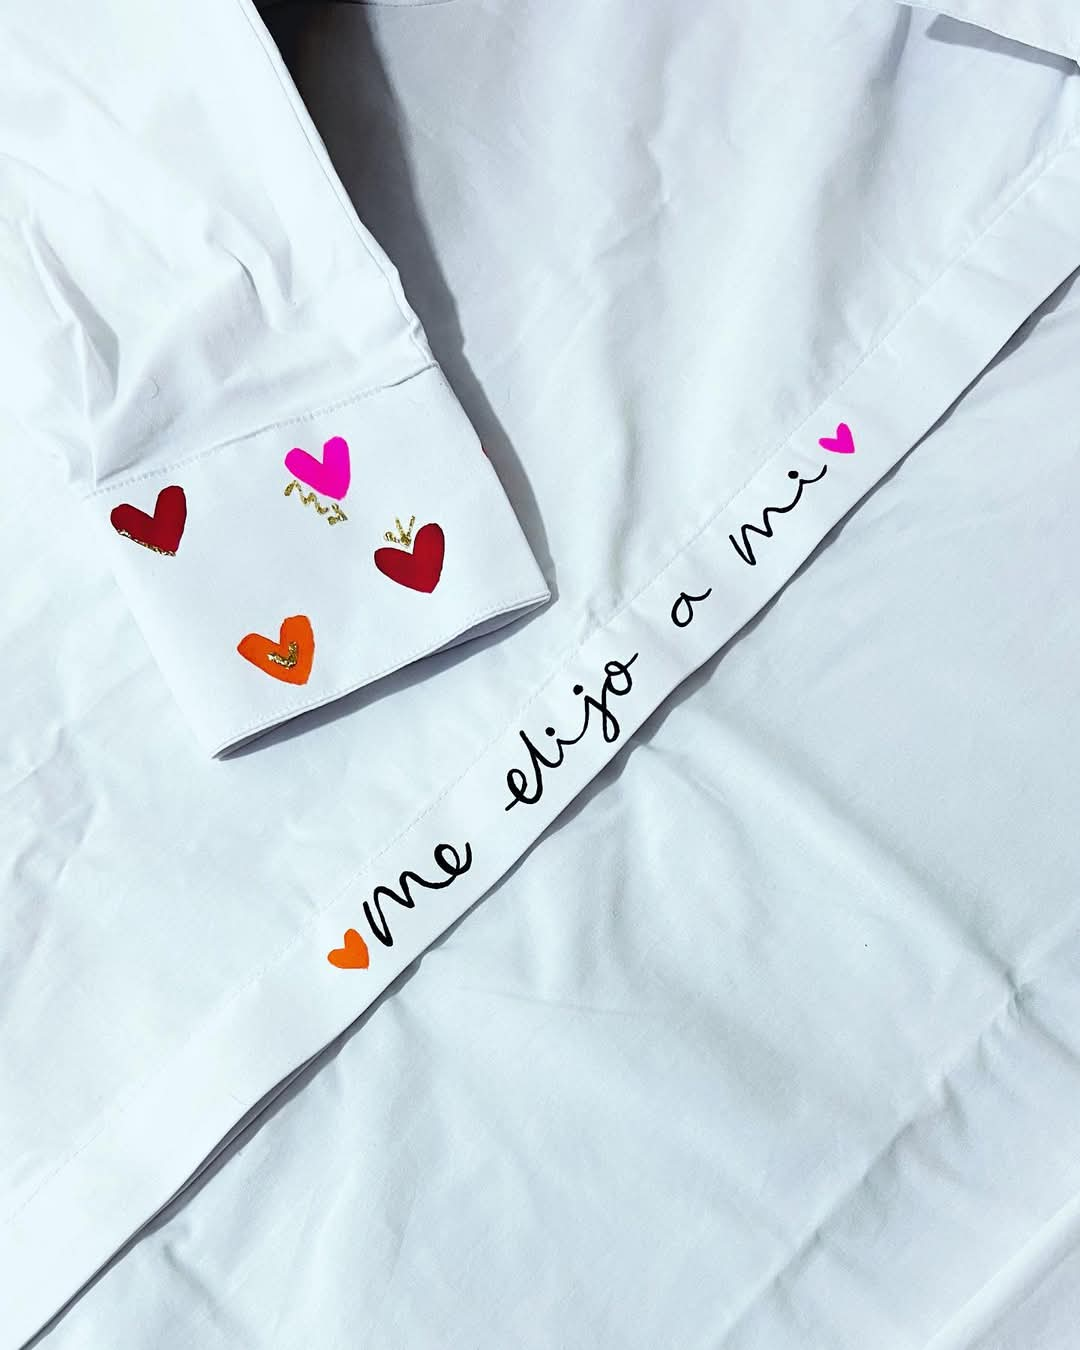 me elijo a mi